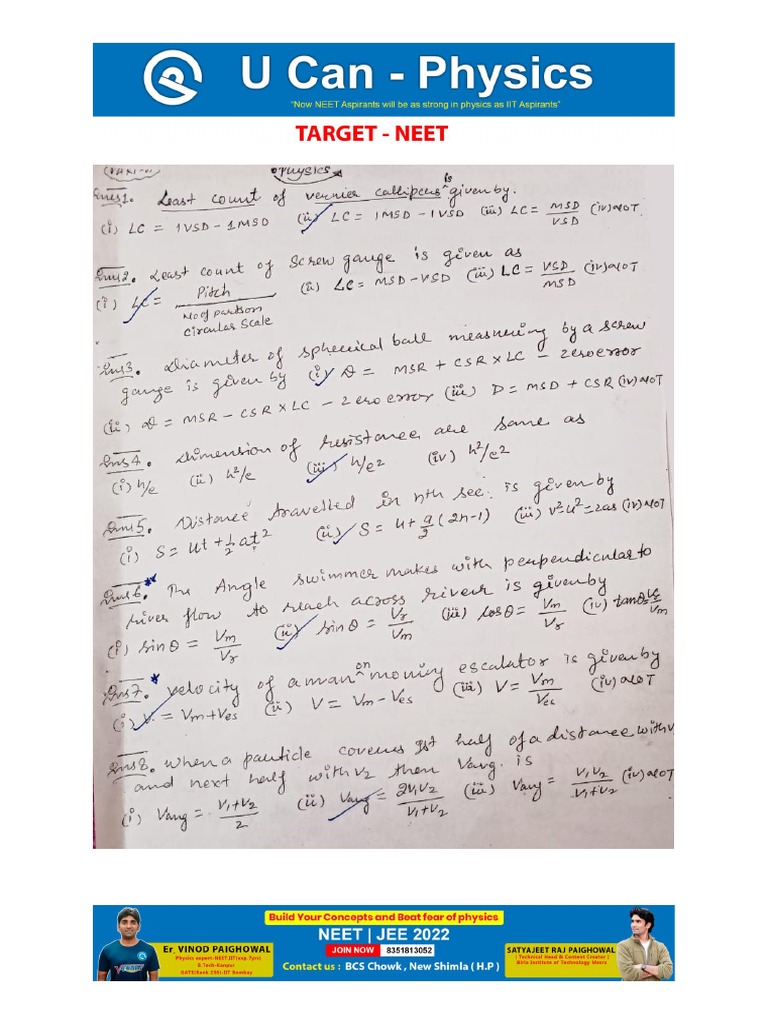 U Can - Physics
"Now NEET Aspirants will be as strong in physics as IIT Aspirants"
TARGET - NEET
Physics
Ques1. Least count of vernier callipers is given by.
(i) LC = 1VSD - 1MSD (ii) LC = 1MSD - 1VSD (iii) LC = MSD/VSD (iv) NOT
Ques2. Least count of screw gauge is given as
(i) LC = Pitch/No of part on circular scale (ii) LC = MSD - VSD (iii) LC = VSD/MSD (iv) NOT
Ques3. Diameter of spherical ball measuring by a screw
gauge is given by (i) D = MSR + CSR x LC - zero error
(ii) D = MSR - CSR x LC - zero error (iii) D = MSD + CSR (iv) NOT
Ques4. Dimension of resistance are same as
(i) h/e (ii) h²/e (iii) h/e² (iv) h²/e²
Ques5. Distance travelled in nth sec. is given by
(i) S = ut + 1/2 at² (ii) S = u + a/2 (2n-1) (iii) v² - u² = 2as (iv) NOT
Ques6. The Angle swimmer makes with perpendicular to
river flow to reach across river is given by
(i) sinθ = Vm/Vr (ii) sinθ = Vr/Vm (iii) cosθ = Vm/Vr (iv) tanθ = Vr/Vm
Ques7. Velocity of a man on moving escalator is given by
(i) V = Vm + Ves (ii) V = Vm - Ves (iii) V = Vm/Ves (iv) NOT
Ques8. When a particle covers 1st half of a distance with v1
and next half with v2 then Vavg. is
(i) Vavg = V1+V2/2 (ii) Vavg = 2V1V2/V1+V2 (iii) Vavg = V1V2/V1+V2 (iv) NOT
Build Your Concepts and Beat fear of physics
NEET | JEE 2022
JOIN NOW 8351813052
Contact us : BCS Chowk , New Shimla ( H.P )
Er. VINOD PAIGHOWAL
Physics expert-NEET,JIT(exp. 7yrs)
B.Tech-Kanpur
GATE(Rank 290)-IIT Bombay
SATYAJEET RAJ PAIGHOWAL
( Technical Head & Content Creator )
Birla Institute of Technology Mesra